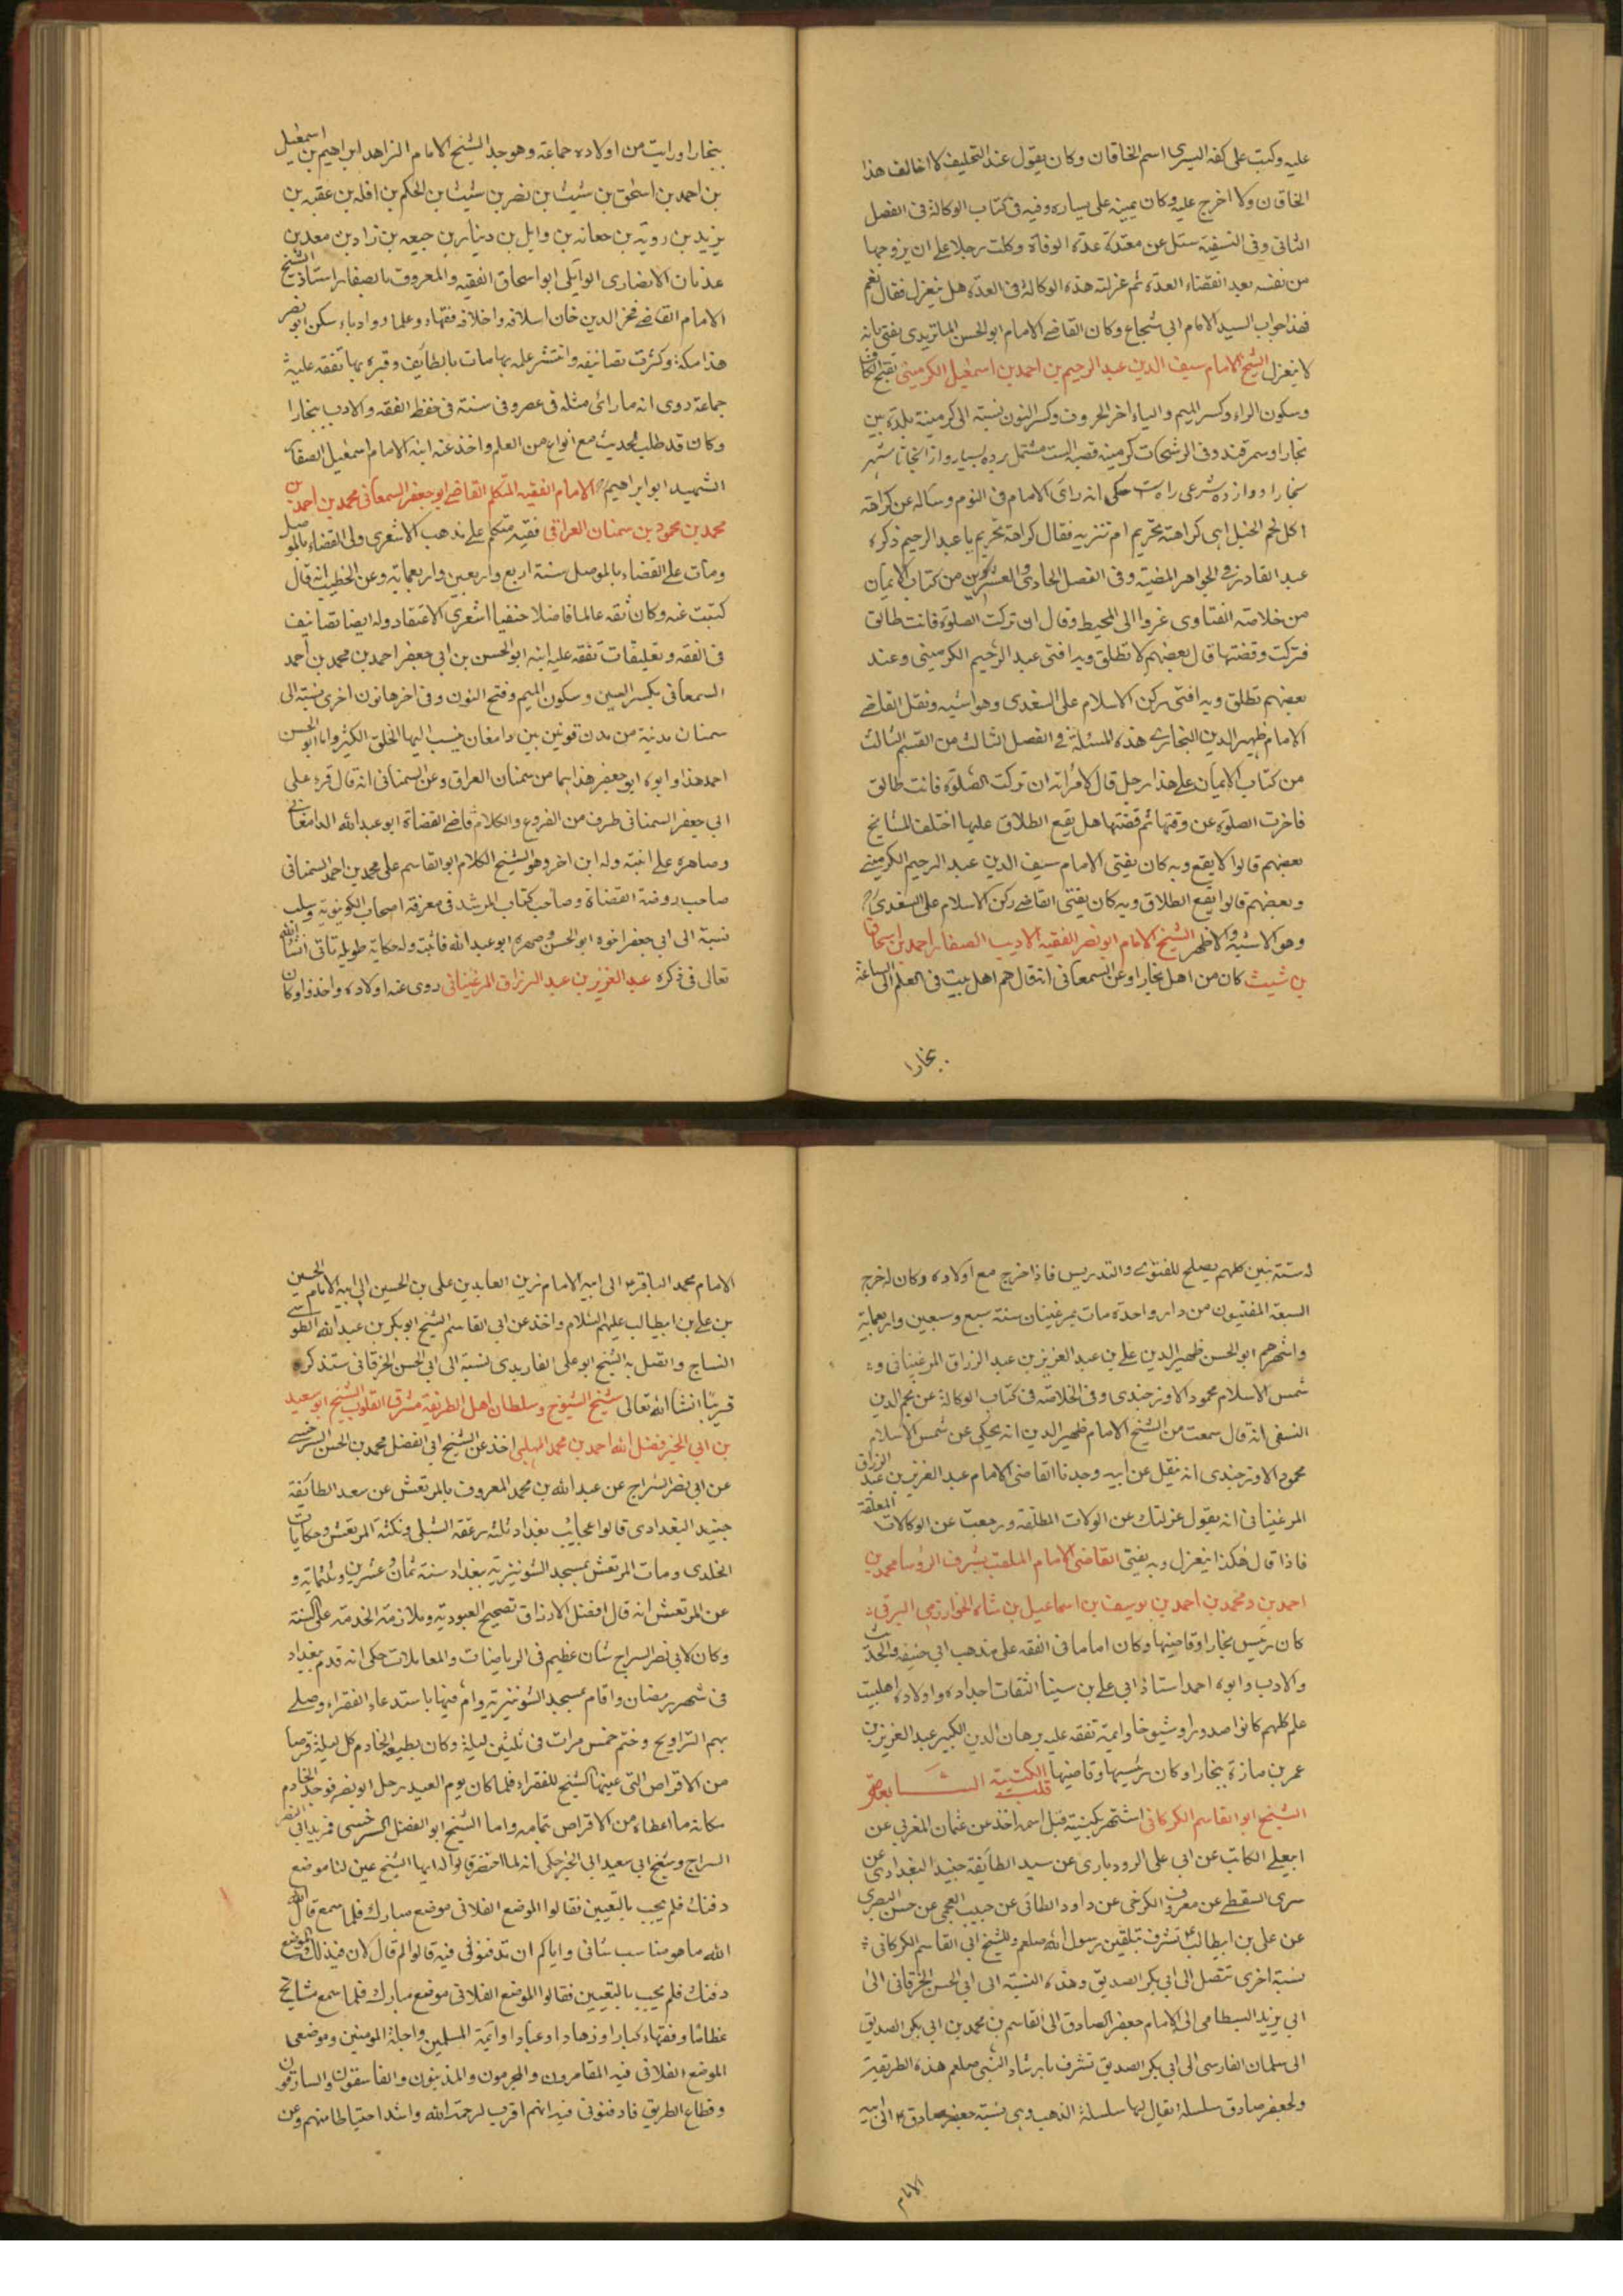 عليه وكتب على كفه اليسرى اسم الخاقان وكان يقول عند التحليف لا اخالف هذا
الخاقان ولا اخرج عليه وكان يمينه على يساره وفيه فى كتاب الوكالة فى الفصل
الثانى وفى النسفية سئل عن معتدة عدة الوفاة وكلت رجلا على ان يزوجها
من نفسه بعد انقضاء العدة ثم عزلته هذه الوكالة فى العدة هل ينعزل فقال نعم
فهذا جواب السيد الامام ابى شجاع وكان القاضى الامام ابو الحسن الماتريدى يفتى بانه
لا ينعزل الشيخ الامام سيف الدين عبد الرحيم بن احمد بن اسمعيل الكرمينى بفتح الكاف
وسكون الراء وكسر الميم والياء اخر الحروف وكسر النون نسبة الى كرمينة بلدة بين
بخارا وسمرقند وفى الرشحات كرمينه قصبه است مشتمل برده بسيار واز انجا تا شهر
بخارا دوازده شرعى راه است حكى انه راى الامام فى النوم وساله عن كراهة
اكل لحم الخيل اهى كراهة تحريم ام تنزيه فقال كراهة تحريم يا عبد الرحيم ذكره
عبد القادر فى الجواهر المضية وفى الفصل الحادى والعشرين من كتاب الايمان
من خلاصة الفتاوى عزوا الى المحيط وقال ان تركت الصلوة فانت طالق
فتركت وقضتها قال بعضهم لا تطلق وبه افتى عبد الرحيم الكرمينى وعند
بعضهم تطلق وبه افتى ركن الاسلام على السغدى وهو اشبه ونقل القاضى
الامام ظهير الدين البخارى هذه المسئلة فى الفصل الثالث من القسم الثالث
من كتاب الايمان على هذا رجل قال لامراته ان تركت الصلوة فانت طالق
فاخرت الصلوة عن وقتها ثم قضتها هل يقع الطلاق عليها اختلف المشايخ
بعضهم قالوا لا يقع وبه كان يفتى الامام سيف الدين عبد الرحيم الكرمينى
وبعضهم قالوا يقع الطلاق وبه كان يفتى القاضى ركن الاسلام على السغدى
وهو الاشبه والاظهر الشيخ الامام ابو نصر الفقيه الاديب الصفار احمد بن اسحاق
بن شيث كان من اهل بخارا وعن السمعانى انه قال هم اهل بيت فى العلم الى الساعة
بخارا
ببخارا ورايت من اولاده جماعة وهو جد الشيخ الامام الزاهد ابراهيم بن اسمعيل
بن احمد بن اسحق بن شيث بن نصر بن شيث بن الحكم بن افلة بن عقبه بن
يزيد بن روبة بن جعانه بن وايل بن دينار بن جيعه بن زاد بن معد بن
عدنان الانصارى الوايلى ابو اسحاق الفقيه والمعروف بالصفار استاذ الشيخ
الامام القاضى فخر الدين خان اسلافه واخلافه فقهاء وعلما وادباء سكن ابو نصر
هذا مكة وكثرت تصانيفه وانتشر علمه بها مات بالطائف وقبره بها تفقه عليه
جماعة روى انه ما راى مثله فى عصره فى سنة فى حفظ الفقه والادب ببخارا
وكان قد طلب الحديث مع انواع من العلم واخذ عنه ابنه الامام اسمعيل الصفار
الشهيد ابو ابراهيم الامام الفقيه المتكلم القاضى ابو جعفر السمعانى محمد بن احمد بن
محمد بن محمود بن سمنان العراقى فقيه متكلم على مذهب الاشعرى ولى القضاء بالموصل
ومات على القضاء بالموصل سنة اربع واربعين واربعمايه وعن الخطيب انه قال
كتبت عنه وكان ثقه عالما فاضلا حنفيا اشعرى الاعتقاد وله ايضا تصانيف
فى الفقه وتعليقات تفقه عليه ابنه ابو الحسن بن ابى جعفر احمد بن محمد بن احمد
السمعانى بكسر السين وسكون الميم وفتح النون وفى اخرها نون اخرى نسبة الى
سمنان مدينة من مدن قومس بين دامغان ينسب اليها الخلق الكثير واما ابو الحسن
احمد هذا وابوه ابو جعفر هذا هما من سمنان العراق وعن السمنانى انه قال قرء على
ابى جعفر السمنانى طرف من الفروع والكلام قاضى القضاة ابو عبد الله الدامغانى
وصاهره على ابنته وله ابن اخر وهو الشيخ الكلام ابو القاسم على محمد بن احمد السمنانى
صاحب روضة القضاة وصاحب كتاب المرشد فى معرفة اصحاب
نسبة الى ابى جعفر اخوه ابو الحسن وصهره ابو عبد الله فائت وله حكاية طويلة تاتى انشا الله
تعالى فى ذكره عبد العزيز بن عبد الرزاق المرغينانى روى عنه اولاده واخذوا وكان
له ستة بنين كلهم يصلح للفتوى والتدريس فاذا خرج مع اولاده وكان له خرج
السبعة المفتيون من دار واحدة مات بمرغينان سنة سبع وسبعين واربعماية
واشهرهم ابو الحسن ظهير الدين على بن عبد العزيز بن عبد الرزاق المرغينانى و
شمس الاسلام محمود الاوزجندى وفى الخلاصة فى كتاب الوكالة عن نجم الدين
النسفى انه قال سمعت من الشيخ الامام ظهير الدين انه يحكى عن شمس الاسلام
محمود الاوزجندى انه ينقل عن ابيه وجدنا القاضى الامام عبد العزيز بن عبد الرزاق
المرغينانى انه يقول عزلتك عن الولات المطلقه ورجعت عن الوكالات المعلقة
فاذا قال هكذا ينعزل وبه يفتى القاضى الامام الملقب بشرف الرؤسا محمد بن
احمد بن ومحمد بن احمد بن يوسف بن اسماعيل بن شاه الخوارزمى البرقى
كان رئيس بخارا وقاضيها وكان اماما فى الفقه على مذهب ابى حنيفه والحديث
والادب وابوه احمد استاذ ابى على بن سينا الثقات اجداده واولاده اهلبيت
علم كلهم كانوا صدورا وشيوخا وايمة تفقه عليه برهان الدين الكبير عبد العزيز بن
عمر بن مازة ببخارا وكان رئيسها وقاضيها الكتيبة السابعة قلب
الشيخ ابو القاسم الكركانى اشتهر بكنيته قبل اسمه اخذ عن عثمان المغربى عن
ابيعلى الكاتب عن ابى على الرودبارى عن سيد الطائفة جنيد البغدادى عن
سرى السقطى عن معروف الكرخى عن داود الطائى عن حبيب العجمى عن حسن البصرى
عن على بن ابيطالب تشرف بتلقين رسول الله صلعم وللشيخ ابى القاسم الكركانى
نسبة اخرى تتصل الى ابى بكر الصديق وهذه النسبة الى ابى الحسن الخرقانى الى
ابى يزيد البسطامى الى الامام جعفر الصادق الى القاسم بن محمد بن ابى بكر الصديق
الى سلمان الفارسى الى ابى بكر الصديق تشرف بارشاد النبى صلعم هذه الطريقة
ولجعفر صادق سلسلة يقال لها سلسلة الذهب وهى نسبة جعفر صادق الى ابيه
الامام
الامام محمد الباقر الى ابيه الامام زين العابدين على بن الحسين الى ابيه الامام الحسين
بن على بن ابيطالب عليهم السلام واخذ عن ابى القاسم الشيخ ابو بكر بن عبد الله الطوسى
النساج واتصل به الشيخ ابو على الفارمدى نسبة الى ابى الحسن الخرقانى ستذكر
قريبا انشا الله تعالى شيخ الشيوخ وسلطان اهل الطريقة مشرق القلوب الشيخ ابو سعيد
بن ابى الخير فضل الله احمد بن محمد المهلبى اخذ عن الشيخ ابى الفضل محمد بن الحسن السرخسى
عن ابى نصر السراج عن عبد الله بن محمد المعروف بالمرتعش عن سعد الطائفة
جنيد البغدادى قالوا عجايب بغداد ثلثه زعقه الشبلى ونكته المرتعش وحكايات
الخلدى ومات المرتعش بمسجد الشونيزيه ببغداد سنة ثمان وعشرين وثلثمايه و
عن المرتعش انه قال افضل الارزاق تصحيح العبوديه وملازمة الخدمة على السنة
وكان لابى نصر السراج شان عظيم فى الرياضات والمعاملات حكى انه قدم بغداد
فى شهر رمضان واقام بمسجد الشونيزيه وام فيها باستدعاء الفقراء وصلى
بهم التراويح وختم خمس مرات فى ثلثين ليلة وكان يطيعه الخادم كل ليلة قرصا
من الاقراص التى عينها الشيخ للفقراء فلما كان يوم العيد رحل ابو نصر فوجد الخادم
مكانه ما اعطاه من الاقراص بتمامه واما الشيخ ابو الفضل السرخسى فريد ابى النصر
السراج وشيخ ابى سعيد ابى الخير حكى انه لما احتضر قالوا له ايها الشيخ عين لنا موضع
دفنك فلم يجب بالتعيين فقالوا الموضع الفلانى موضع مبارك فلما سمع قال الله
الله ما هو مناسب شانى واياكم ان تدفنونى فيه قالوا لم قال لان فيه
دفنك فلم يجب بالتعيين فقالوا الموضع الفلانى موضع مبارك فلما سمع مشايخ
عظاما وفقهاء كبارا وزهادا وعبادا وايمة المسلمين واجلة المومنين وموضعى
الموضع الفلانى فيه المقامرون والمجرمون والمذنبون والفاسقون والسارقون
وقطاع الطريق فادفنونى فيه انهم اقرب لرحمة الله واشد احتياطا منهم وعن